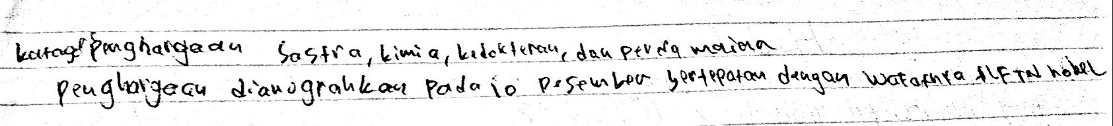 kategori penghargaan sastra, kimia, kedokteran, dan perdamaian
penghargaan dianograhkan pada 10 Desember bertepatan dengan wafatnya ALFTN nobel